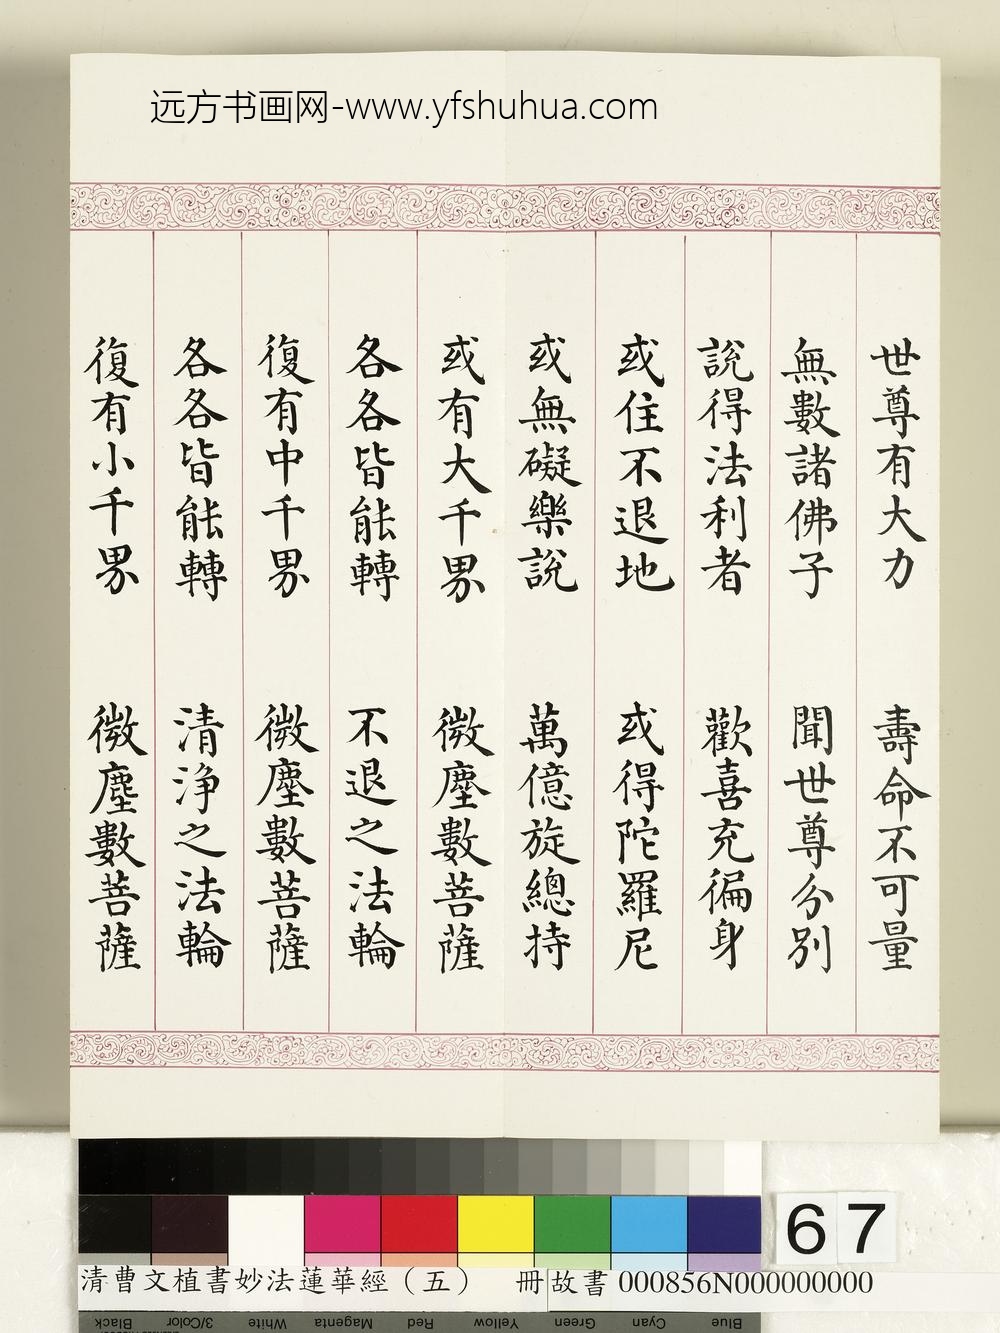 远方书画网-www.yfshuhua.com
世尊有大力 壽命不可量
無數諸佛子 聞世尊分別
說得法利者 歡喜充徧身
或住不退地 或得陀羅尼
或無礙樂說 萬億旋總持
或有大千界 微塵數菩薩
各各皆能轉 不退之法輪
復有中千界 微塵數菩薩
各各皆能轉 清淨之法輪
復有小千界 微塵數菩薩
67
清曹文植書妙法蓮華經（五） 冊故書000856N000000000
Black 3/Color White Magenta Red Yellow Green Cyan Blue